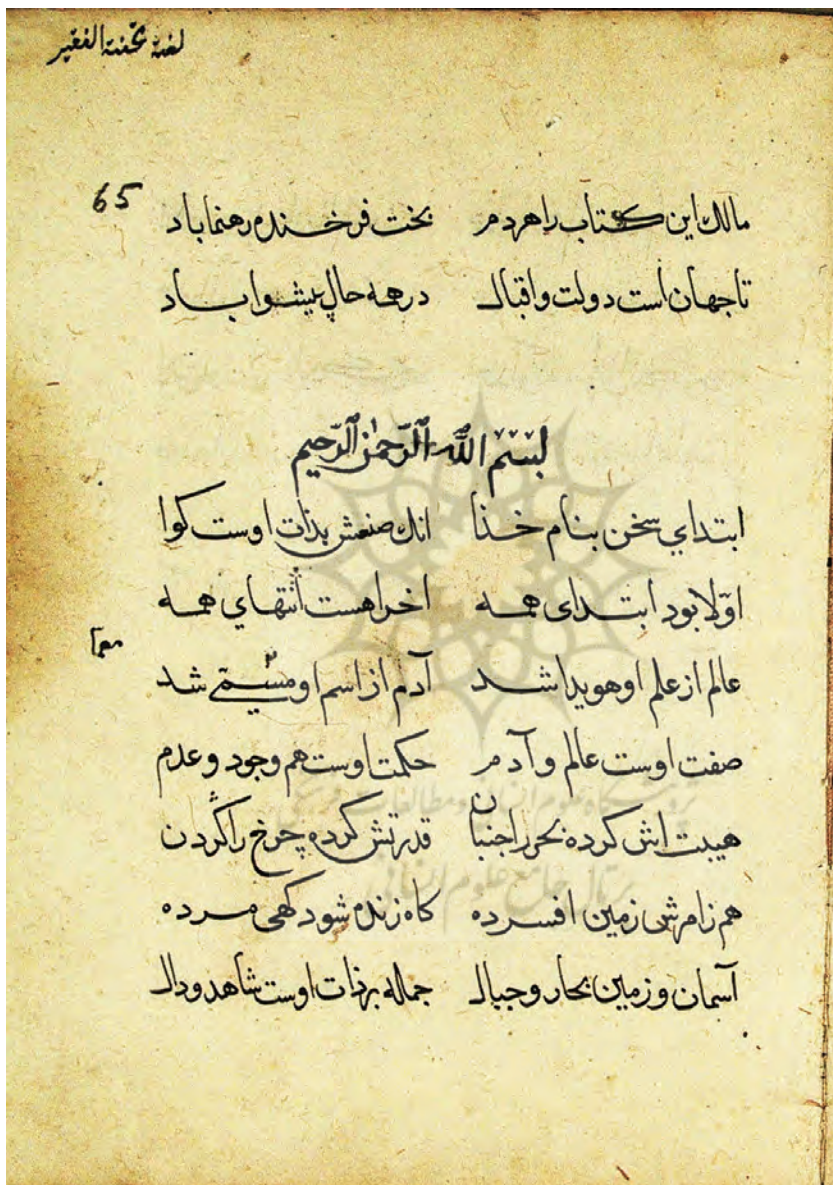 لغة تحفة الفقیر
65
مالک این کتاب را هر دم بخت فرخنده رهنما باد
تا جهان است دولت و اقبال در همه حال پیشوا باد
بسم الله الرحمن الرحیم
ابتدای سخن بنام خذا انک صنعش بذات اوست کوا
اولا بود ابتدای همه اخرا هست انتهای همه
معما
عالم از علم او هویدا شد آدم از اسم او مسمی شد
صفت اوست عالم و آدم حکمت اوست هم وجود و عدم
هیبت اش کرده بحر را جنبان قدرتش کرده چرخ را کردن
هم ز امرش زمین افسرده کاه زنده شود کهی مرده
آسمان و زمین بحار و جبال جمله بر ذات اوست شاهد و دال
پژوهشگاه علوم انسانی و مطالعات فرهنگی
پرتال جامع علوم انسانی